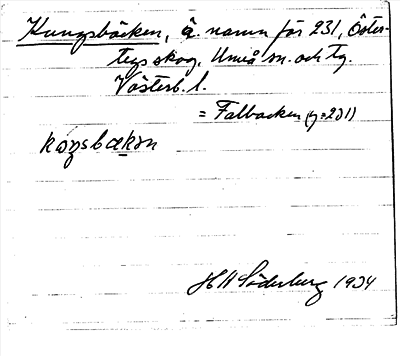 Kungsbäcken, ä. namn för 231, Öster-
tegs skog, Umeå sn. och tg.
Västerb. l.
= Falbacken (y=231)
kɷŋsbækən
H Söderberg 1934